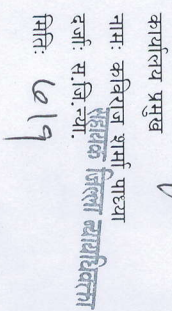 कार्यालय प्रमुख
नामः कविराज शर्मा पाध्या
दर्जाः स.जि.न्या.
सहायक जिल्ला न्यायाधिवक्ता
मितिः ७१९